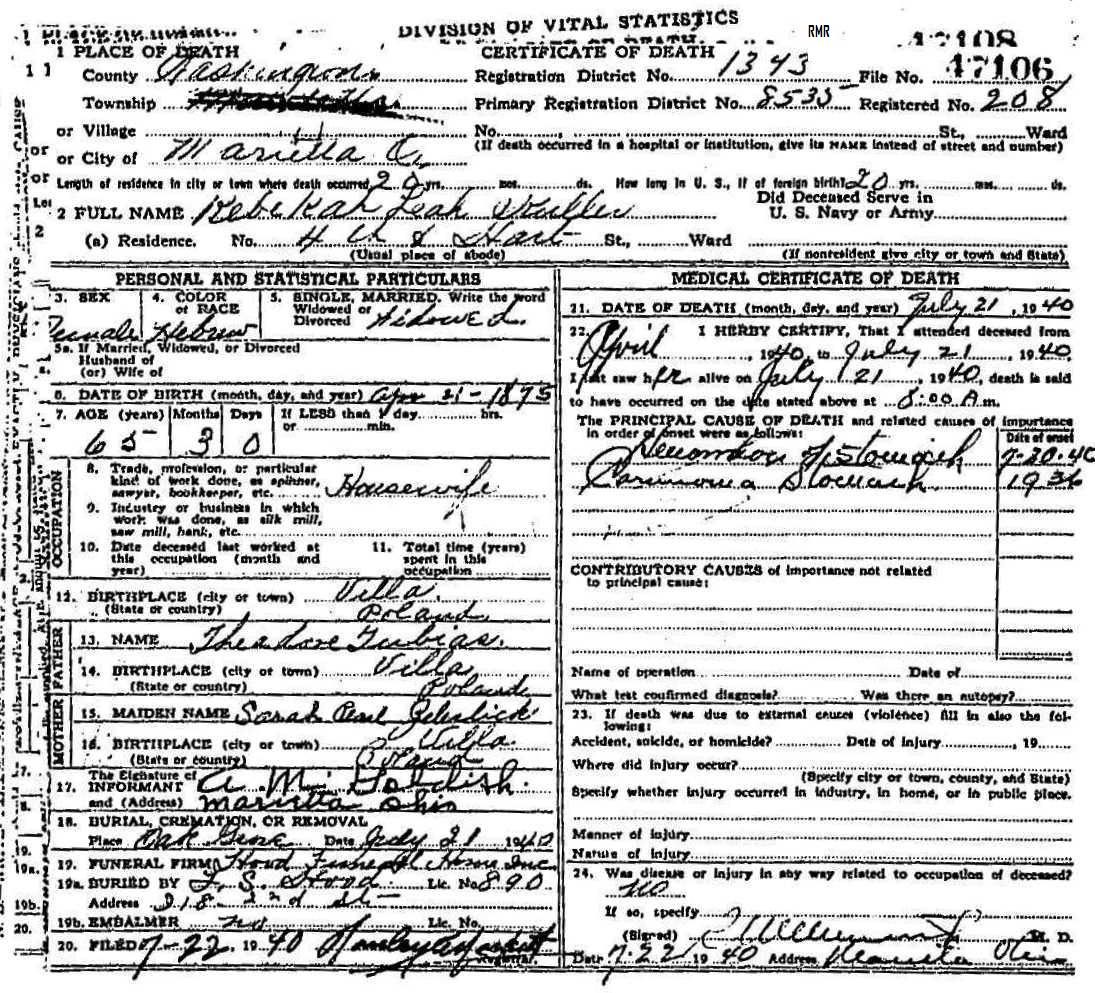 DIVISION OF VITAL STATISTICS
RMR
CERTIFICATE OF DEATH
47106
1 PLACE OF DEATH
County Washington
Registration District No. 1343 File No. 47106
Township
Primary Registration District No. 8535 Registered No. 208
or Village
No. St., Ward
or City of Marietta O.
(If death occurred in a hospital or institution, give its NAME instead of street and number)
Length of residence in city or town where death occurred 20 yrs. mos. ds. How long in U. S., if of foreign birth? 20 yrs. mos. ds.
2 FULL NAME Rebekah Leah
Did Deceased Serve in
U. S. Navy or Army
(a) Residence. No. 4th & Hart St., Ward
(Usual place of abode) (If nonresident give city or town and State)
PERSONAL AND STATISTICAL PARTICULARS
3. SEX 4. COLOR or RACE 5. SINGLE, MARRIED. Write the word
Widowed or
Divorced Widowed
Female Hebrew
5a. If Married, Widowed, or Divorced
Husband of
(or) Wife of
6. DATE OF BIRTH (month, day, and year) Apr 21-1875
7. AGE (years) Months Days If LESS than 1 day hrs.
or min.
65 3 0
OCCUPATION
8. Trade, profession, or particular
kind of work done, as spinner,
sawyer, bookkeeper, etc. Housewife
9. Industry or business in which
work was done, as silk mill,
saw mill, bank, etc.
10. Date deceased last worked at
this occupation (month and
year)
11. Total time (years)
spent in this
occupation
12. BIRTHPLACE (city or town) Villa
(State or country) Poland
FATHER
13. NAME Theodore
14. BIRTHPLACE (city or town) Villa
(State or country) Poland
MOTHER
15. MAIDEN NAME Sarah Pearl
16. BIRTHPLACE (city or town) Villa
(State or country) Poland
The Signature of
17. INFORMANT A. M. Goldish
and (Address) Marietta Ohio
18. BURIAL, CREMATION, OR REMOVAL
Place Oak Grove Date July 21 1940
19. FUNERAL FIRM Hood Funeral Home Inc
19a. BURIED BY L. S. Hood Lic. No. 890
Address 218 2nd St
19b. EMBALMER no Lic. No.
20. FILED 7-22 1940
Registrar.
MEDICAL CERTIFICATE OF DEATH
21. DATE OF DEATH (month, day, and year) July 21, 1940
22. I HERBY CERTIFY, That I attended deceased from
April, 1940, to July 21 1940.
I last saw her alive on July 21, 1940, death is said
to have occurred on the date stated above at 8:00 A.m.
The PRINCIPAL CAUSE OF DEATH and related causes of importance
in order of onset were as follows:
Date of onset
of Stomach 7-20-40
Carcinoma Stomach 1936
CONTRIBUTORY CAUSES of importance not related
to principal cause:
Name of operation Date of
What test confirmed diagnosis? Was there an autopsy?
23. If death was due to external causes (violence) fill in also the fol-
lowing:
Accident, suicide, or homicide? Date of injury , 19
Where did injury occur?
(Specify city or town, county, and State)
Specify whether injury occurred in industry, in home, or in public place.
Manner of injury
Nature of injury
24. Was disease or injury in any way related to occupation of deceased?
no
If so, specify
(Signed) M. D.
Date 7-22 1940 Address Marietta Ohio